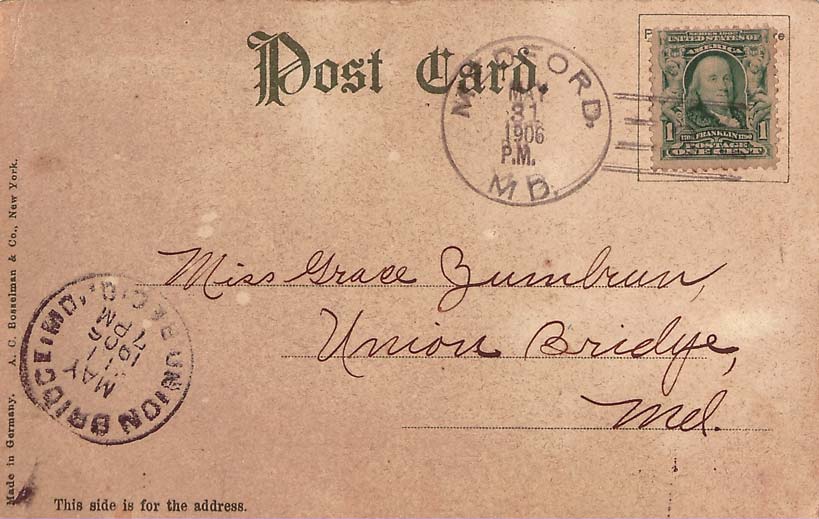 Post Card.
MD.
31
1906
P.M.
SERIES 1902
UNITED STATES OF
AMERICA
1 FRANKLIN 1
POSTAGE
ONE CENT
Miss Grace Zumbrun,
Union Bridge,
Md.
UNION BRIDGE, MD.
REC'D.
MAY
1906
7 PM
Made in Germany. A. C. Bosselman & Co., New York.
This side is for the address.